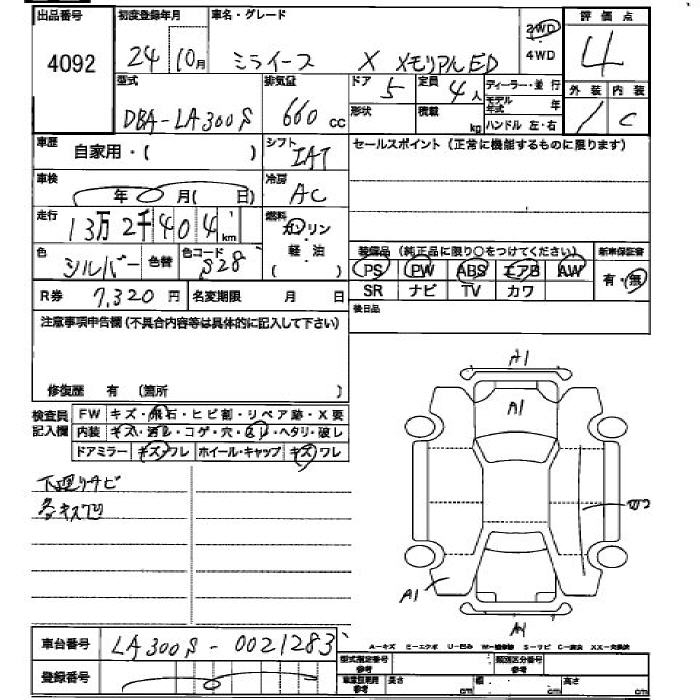 出品番号 初度登録年月 車名・グレード 評価点
4092 24 10月 ミライース X メモリアルED 2WD 4
・4WD
型式 排気量 ドア 定員 ディーラー・並行 外装 内装
DBA-LA300S 660 cc 5 4人 モデル年式 年 1 C
形状 積載 kg ハンドル 左・右
車歴 自家用・( ) シフト IAT セールスポイント(正常に機能するものに限ります)
車検 年 月( 日) 冷房 AC
走行 13万2千404 km 燃料 ガソリン
・
軽・油
( ・ )
色 シルバー 色替 色コード S28 装備品(純正品に限り○をつけてください) 新車保証書
PS PW ABS エアB AW 有・無
R券 7,320円 名変期限 月 日 SR ナビ TV カワ
注意事項申告欄(不具合内容等は具体的に記入して下さい) 後日品
修復歴 有 (箇所 )
検査員記入欄 FW キズ・飛石・ヒビ割・リペア跡・X要
内装 キズ・汚レ・コゲ・穴・スリ・ヘタリ・破レ
ドアミラー キズ・ワレ ホイール・キャップ キズ・ワレ
下廻りサビ
各キズ凹
A1
A1
A1
車台番号 LA300S-0021283
A-キズ E-エクボ U-凹み W-補修跡 S-サビ C-腐食 XX-交換済
登録番号
型式指定番号 参考 類別区分番号 参考
車室証明用 参考 長さ cm 幅 cm 高さ cm